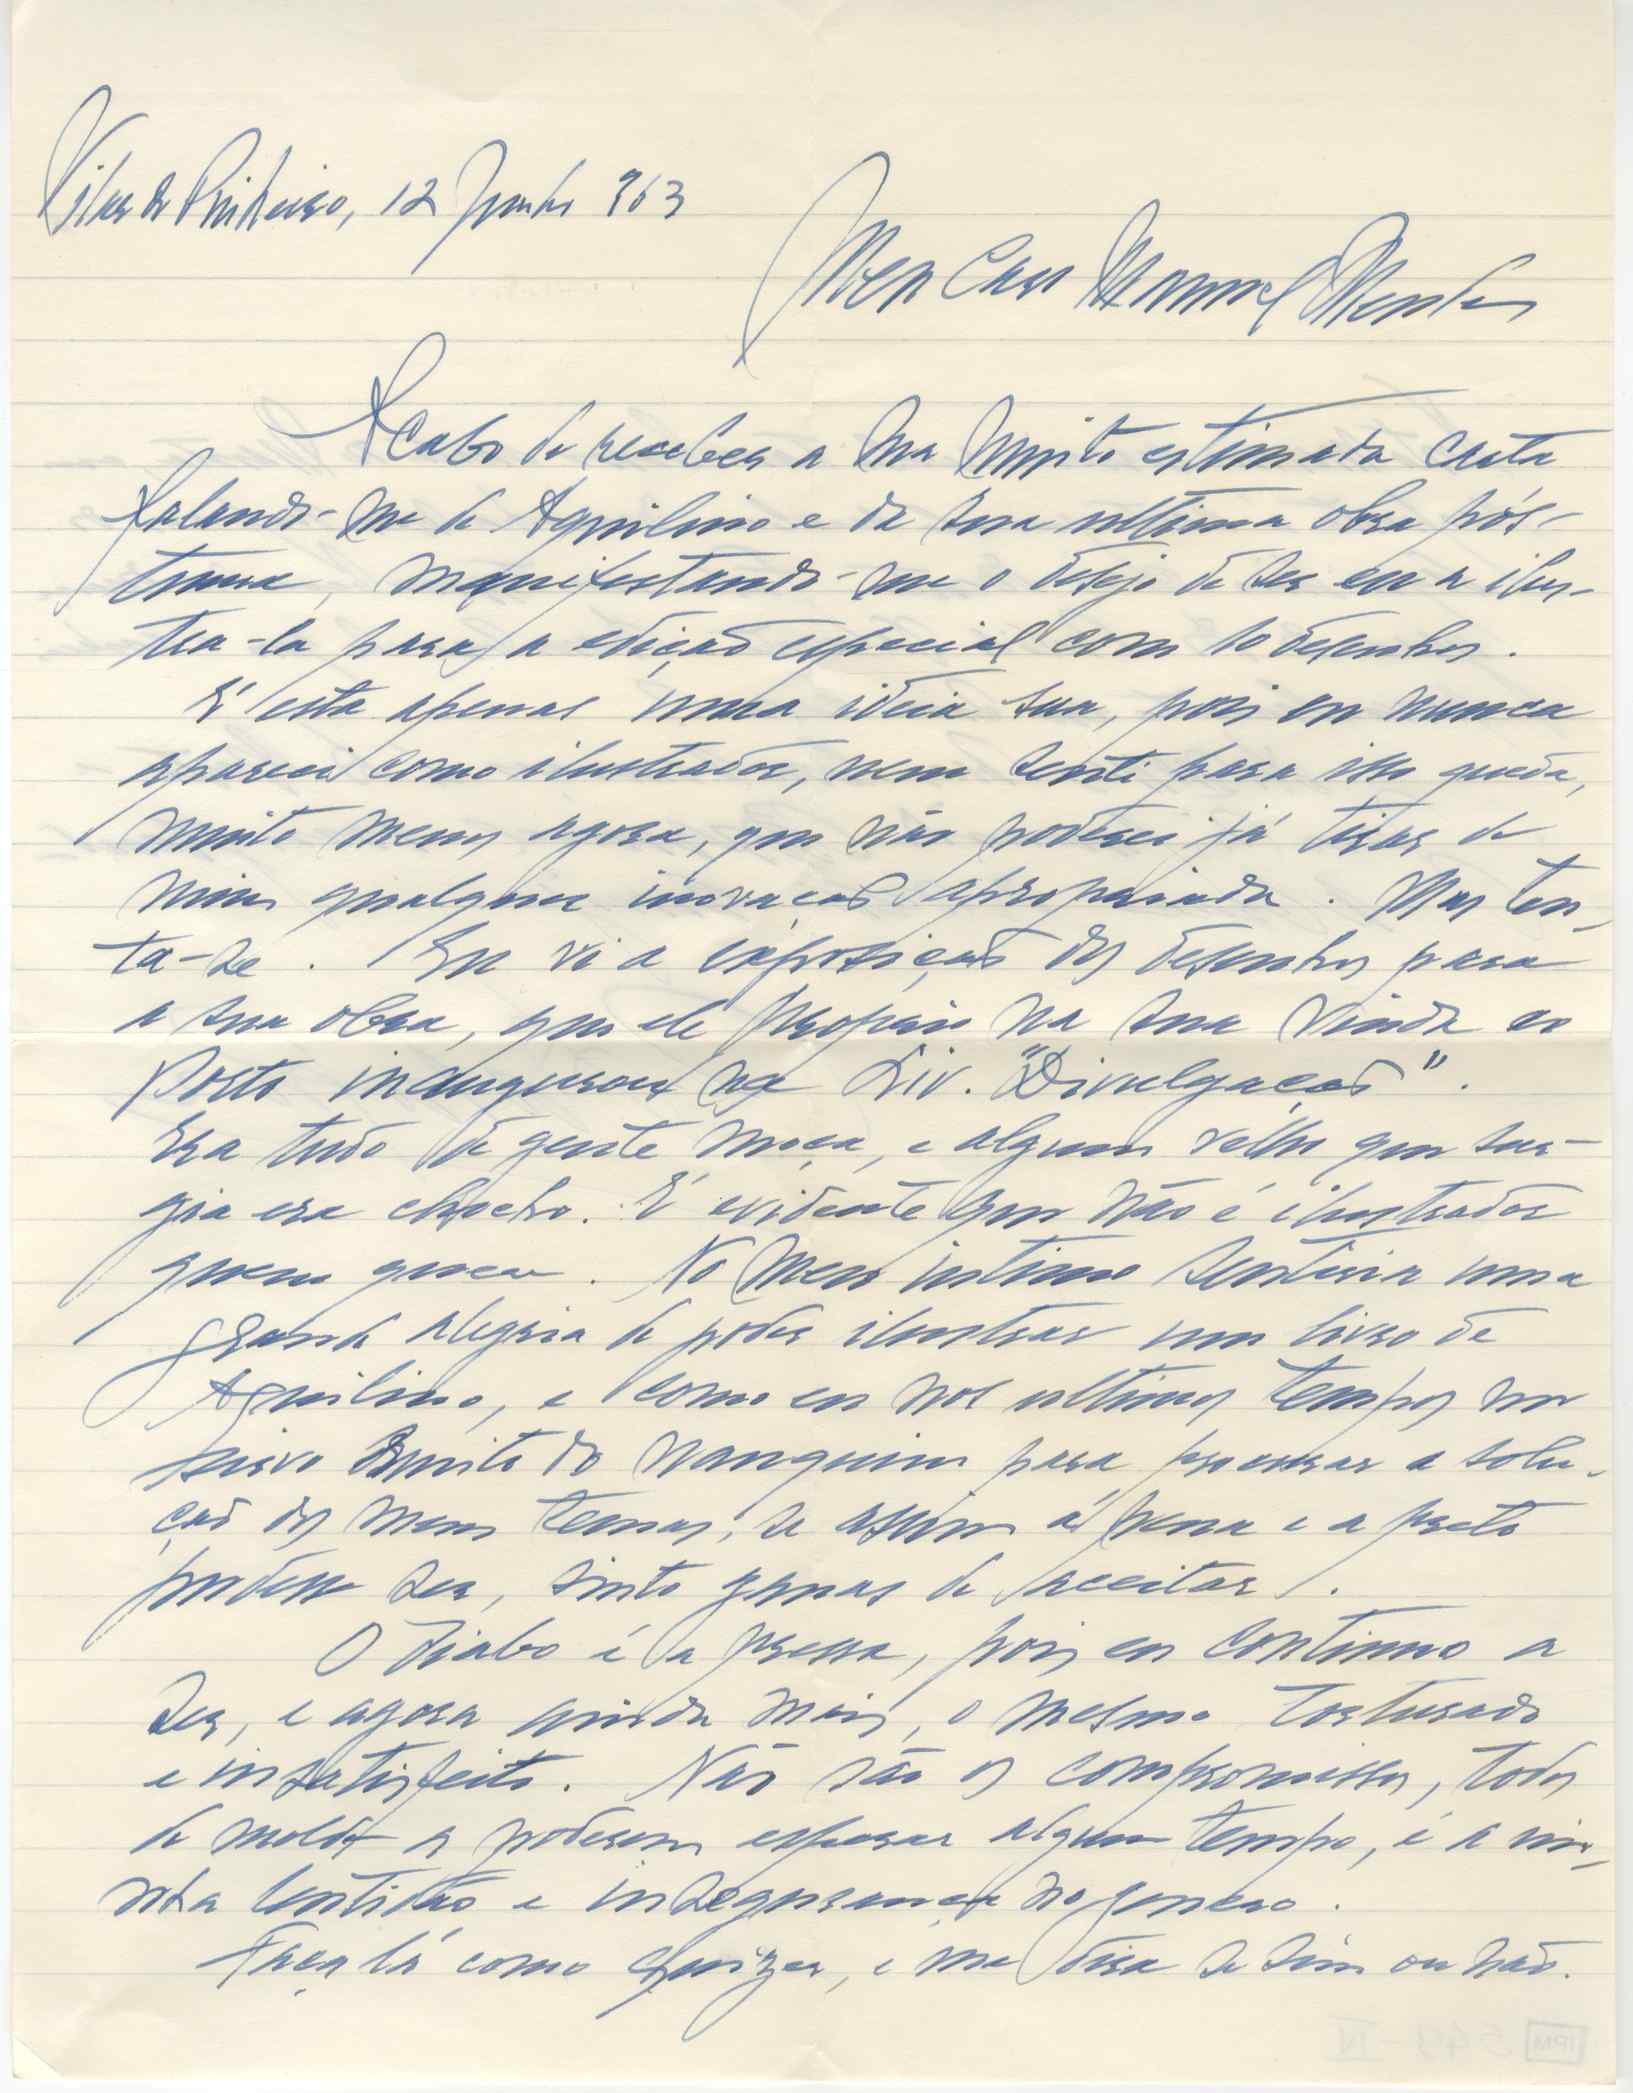 Vilar do Pinheiro, 12 Junho 963
Meu Caro Manuel Mendes
Acabo de receber a sua muito estimada carta
falando-me de Aquilino e da sua ultima obra pós-
tuma, manifestando-me o desejo de ser eu a ilus-
tra-la para a edição especial com 10 desenhos.
É esta apenas uma ideia sua, pois eu nunca
apareci como ilustrador, nem senti para isso queda,
muito menos agora, que não poderei já tirar de
mim qualquer inovação apropriada. Mas ten-
ta-se. Eu vi a exposição dos desenhos para
a sua obra, que ele proprio na sua vinda ao
Porto inaugurou na Liv. "Divulgação".
Era tudo de gente moça, e algum velho que sur-
gia era chocho. É evidente que não é ilustrador
quem quer. No meu intimo sentiria uma
grande alegria de poder ilustrar um livro de
Aquilino, e como eu nos ultimos tempos me
sirvo muito do nanquim para procurar a solu-
ção dos meus temas, se assim á pena e a preto
pudesse ser, sinto ganas de aceitar.
O diabo é a pressa, pois eu continuo a
ser, e agora ainda mais, o mesmo torturado
e insatisfeito. Não são os compromissos, todos
de molde a poderem esperar algum tempo, é a mi-
nha lentidão e insegurança no genero.
Faça lá como quizer, e me diga se sim ou não.
IPM 549 IV